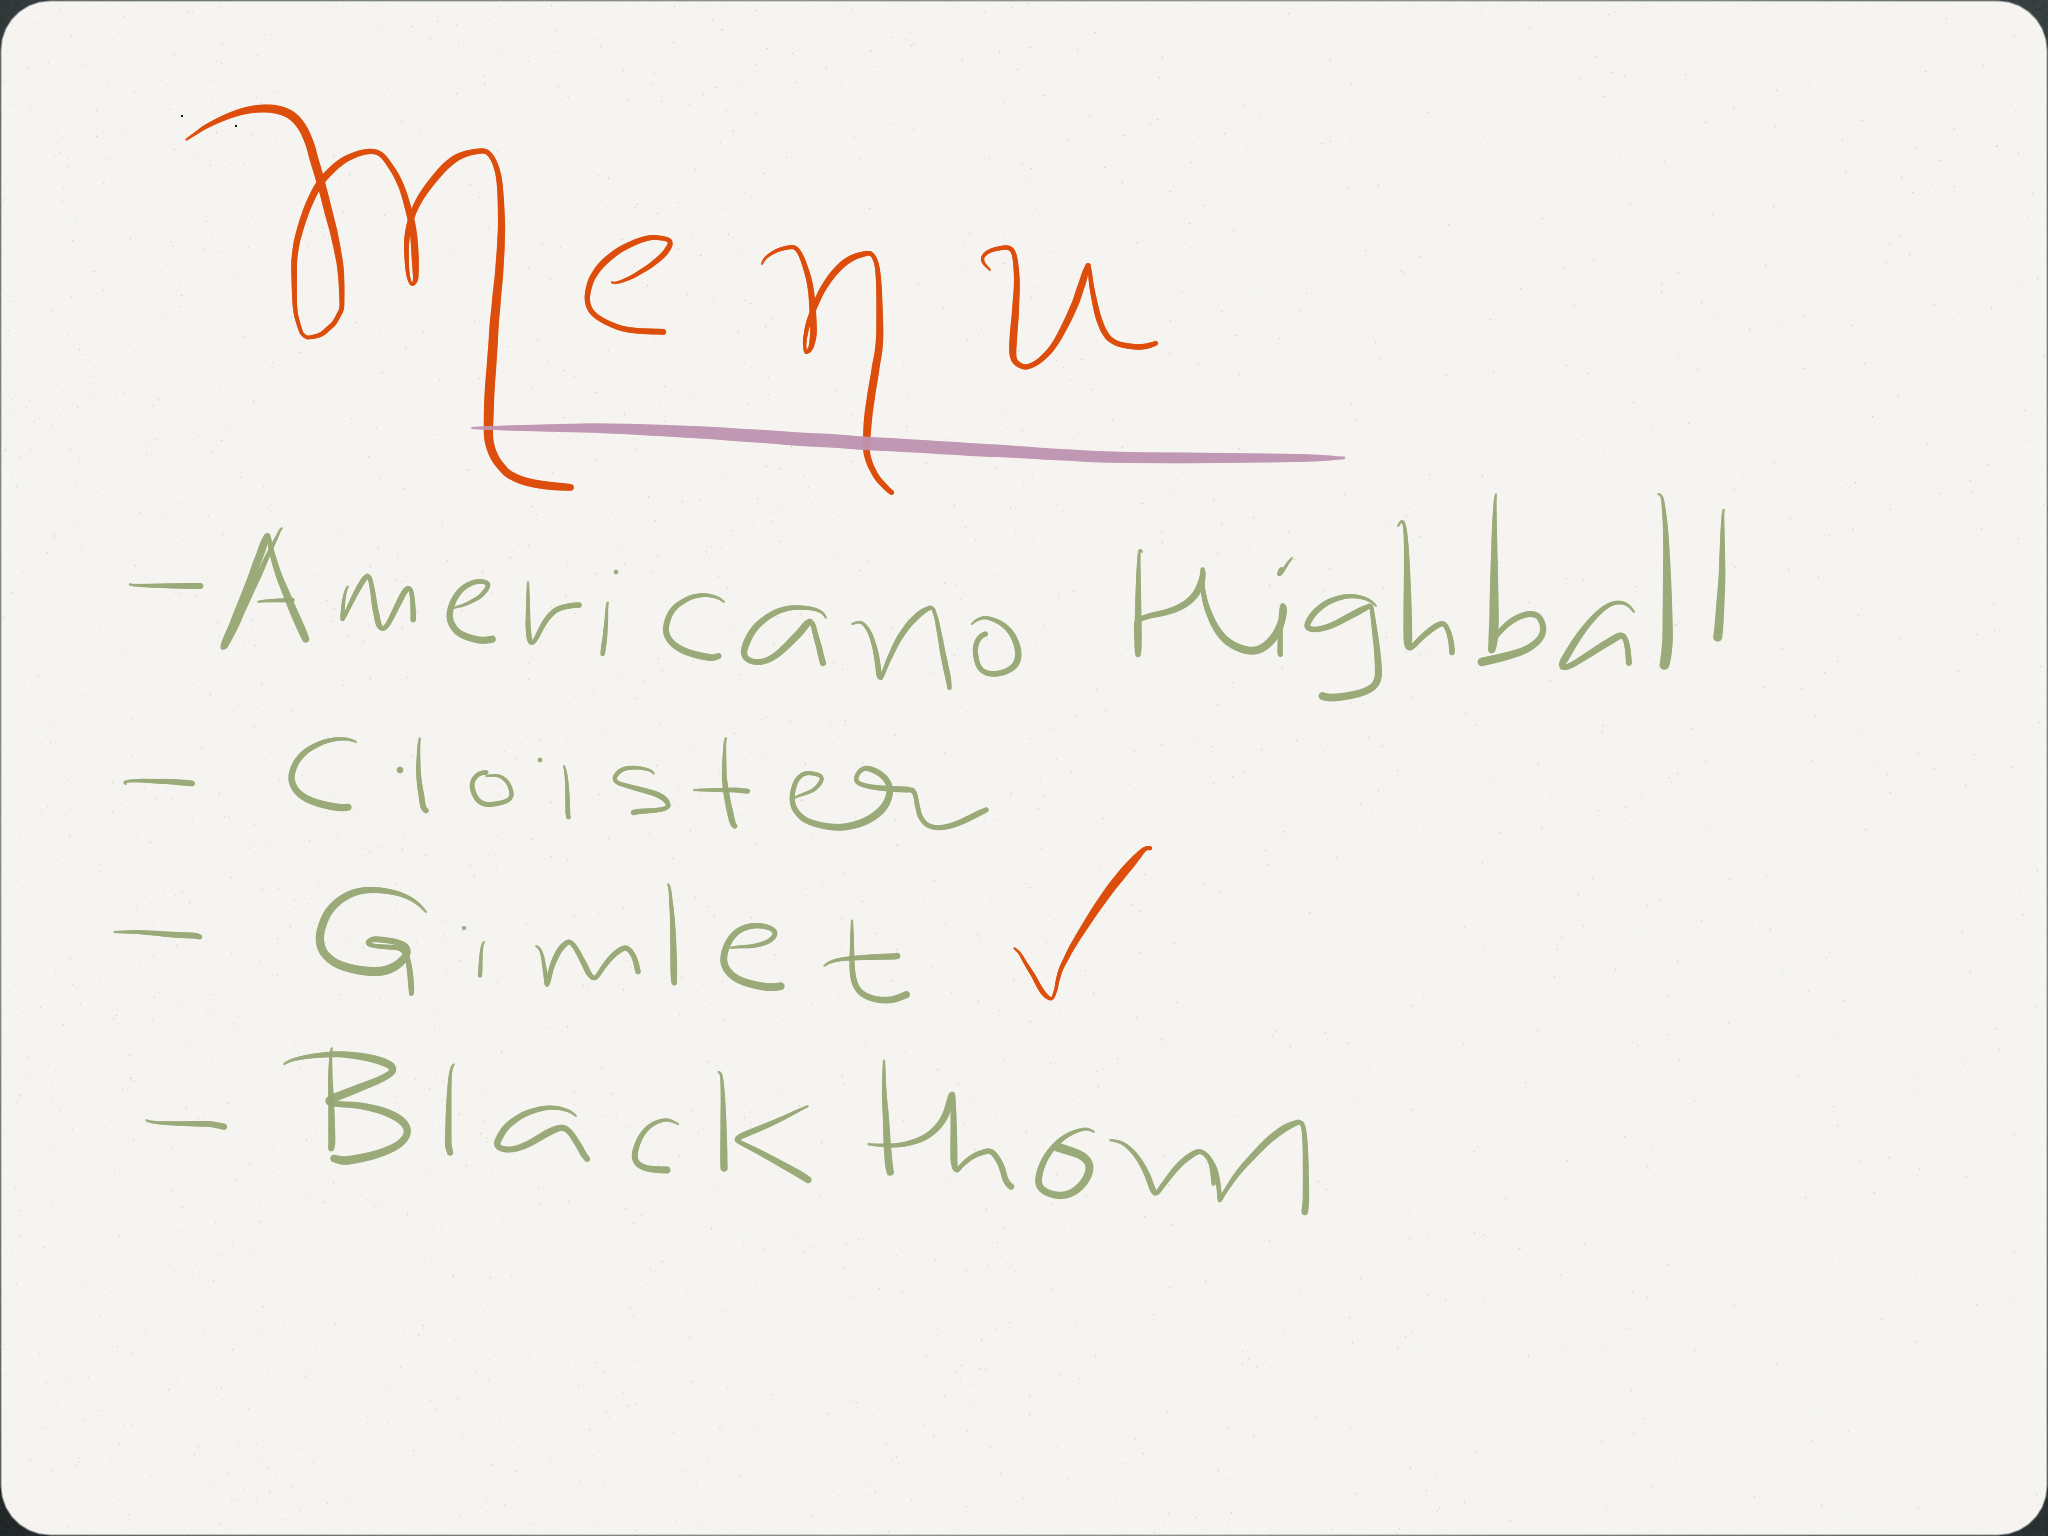 Menu
- Americano Highball
- Cloister
- Gimlet ✓
- Blackthorn